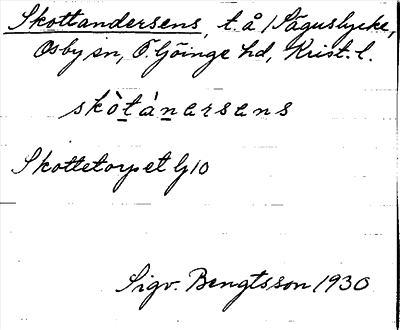 Skottandersens, t. å 1 Såguslycke,
Osby sn, Ö. Göinge hd, Krist. l.
skòtànersens
Skottetorpet Lj10
Sigv. Bengtsson 1930